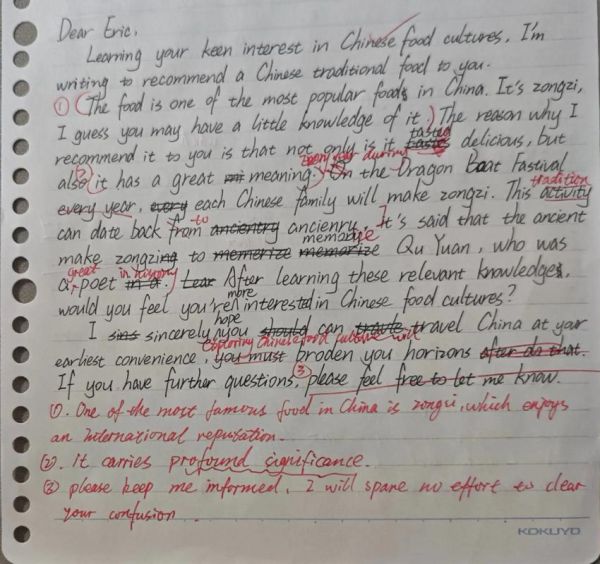 Dear Eric,
Learning your keen interest in Chinese food cultures, I'm
writing to recommend a Chinese traditional food to you.
① (The food is one of the most popular foods in China. It's zongzi,
I guess you may have a little knowledge of it.) The reason why I
tasted
recommend it to you is that not only is it taste delicious, but
② Every year during
also (it has a great mi meaning.) On the Dragon Boat Fastival
tradition
every year, every each Chinese family will make zongzi. This activity
to
can date back from ancientry ancienry. It's said that the ancient
memorize
make zongzing to memerize memorize Qu Yuan, who was
great in history
a poet in a. Lear After learning these relevant knowledges,
more
would you feel you're interestedin Chinese food cultures?
hope
I sins sincerely you should can travle travel China at your
exploring Chinese food culture will
earliest convenience, you must broden you horizons after do that.
If you have further questions, ③ please feel free to let me know.
①. One of the most famous food in China is zongzi, which enjoys
an international reputation.
②. It carries profound significance.
③ please keep me informed, I will spane no effort to clear
your confusion.
KOKUYO